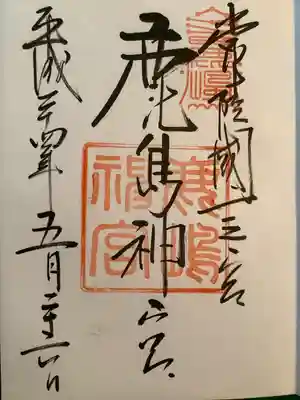 常陸國一之宮
鹿島神宮
平成二十四年五月二十六日
鹿嶋
神宮